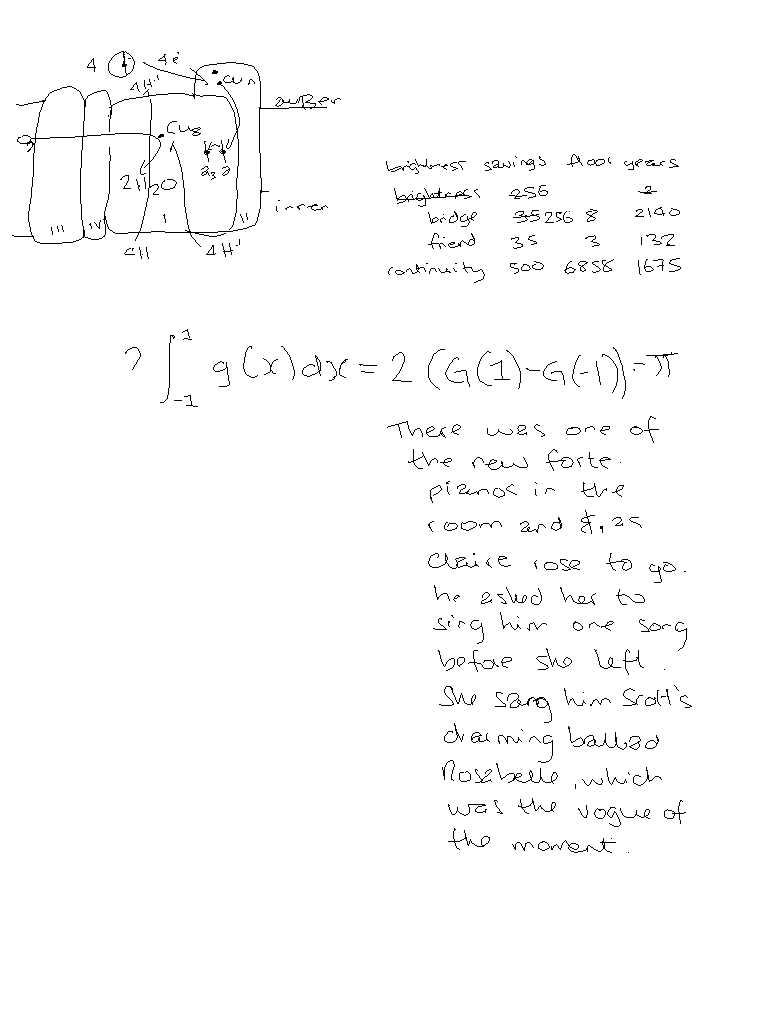 4 4e
4H+ Cu A
außen
CuB
2H2O
inner
III IV I II
4H 4H+
brightness savings floor years
brightness 256 2
bridge 35 256 8 2140
friend 35 3 132
continuity 500 6858 1675
? ∫₋₁¹ g(x)dx = 2(G(1)-G(-1))-π
There was one of
the new forte.
pianos in the
room and $, as
Claire rose to go.
he asked her to
sing him one song
before she left.
She sang him Scott's
charming ballad
Rosabelle, which
was the vogue of
the moment.